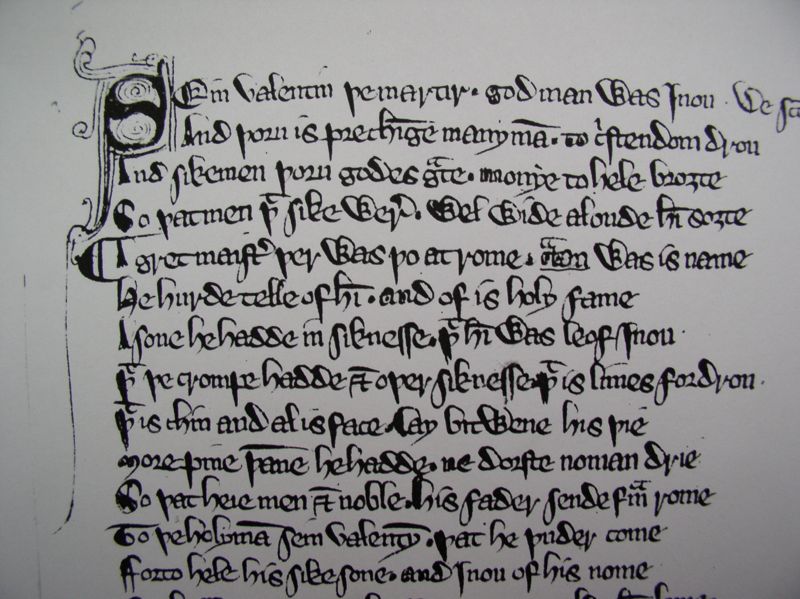 SEin valentin þe martir · god man was Inou · We
And þoru is prechīge many mā · to cͥstendom drou
And sikemen þoru godes gᵃce · monye to hele broȝte
So þat men þᵗ sike wer̉ · wel wide aloude hī soȝte
A gret maistˀ þer was þo at rome · was is name
He hurde telle of hī · and of is holy fame
A sone he hadde in siknesse · þᵗ hī was leof Inou ·
þᵗ þe crompe hadde ⁊ oþer siknesse · þᵗ is limes fordrou ·
þᵗ is chin and al is face · lay bitwene his þie
More pine þane he hadde · ne dorfte noman drie
So þat heie men ⁊ noble · his fader sende frā rome
To þe holymā sein valentȳ · þat he þuder come
Forto hele his sike sone · and Inou of his nome